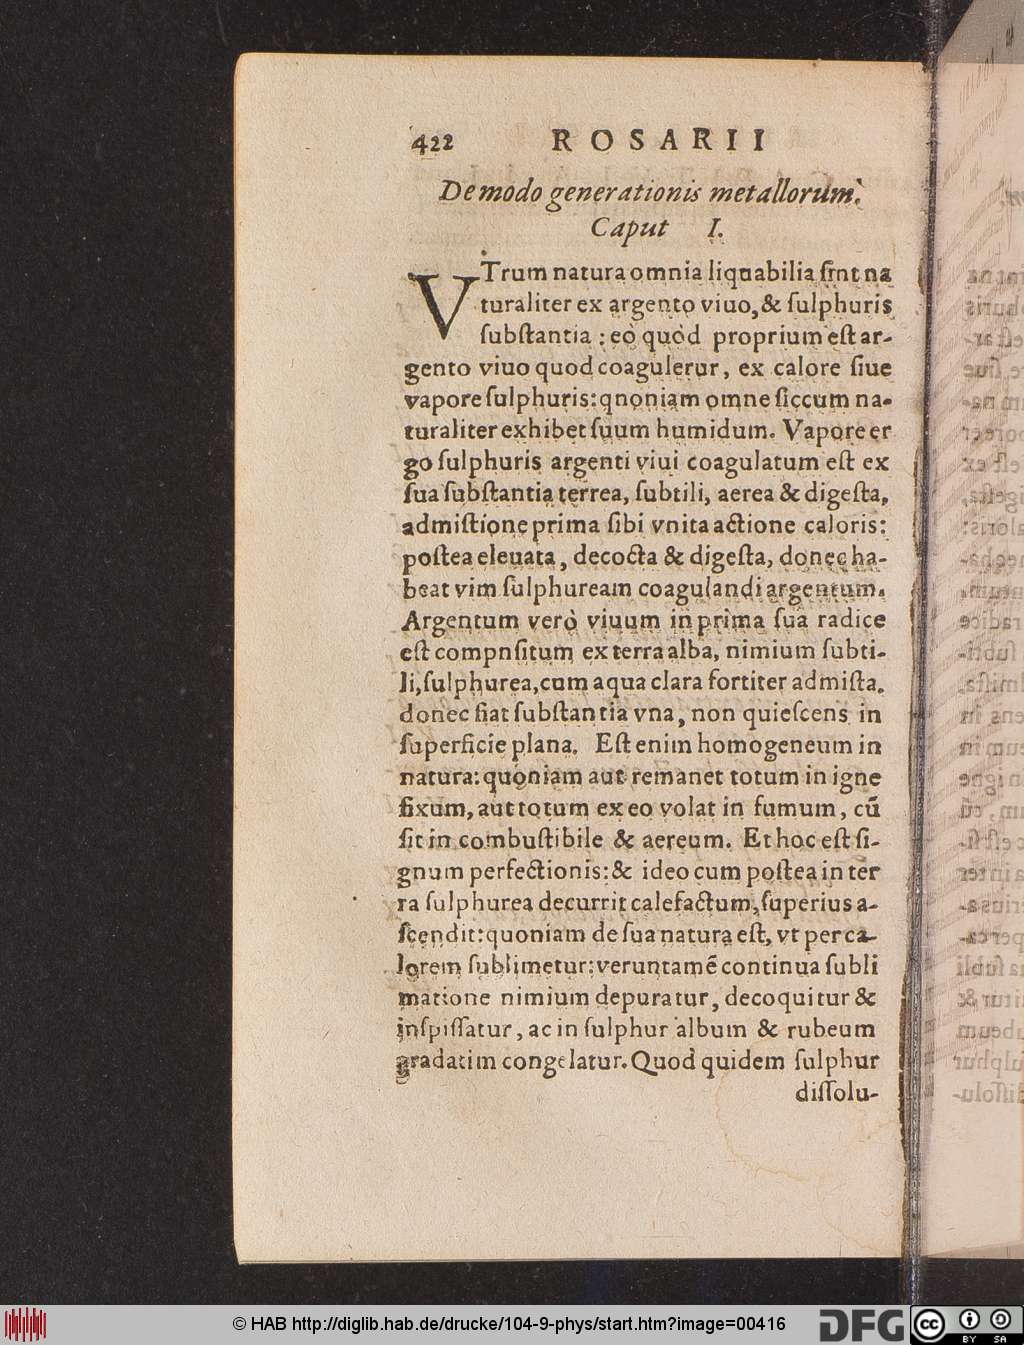 422 ROSARII
De modo generationis metallorum.
Caput I.
VTrum natura omnia liquabilia sint na
turaliter ex argento viuo, & sulphuris
substantia : eò quòd proprium est ar-
gento viuo quod coaguletur, ex calore siue
vapore sulphuris: qnoniam omne siccum na-
turaliter exhibet suum humidum. Vapore er
go sulphuris argenti viui coagulatum est ex
sua substantia terrea, subtili, aerea & digesta,
admistione prima sibi vnita actione caloris:
postea eleuata, decocta & digesta, donec ha-
beat vim sulphuream coagulandi argentum.
Argentum verò viuum in prima sua radice
est compnsitum ex terra alba, nimium subti-
li, sulphurea, cum aqua clara fortiter admista.
donec fiat substantia vna, non quiescens in
superficie plana. Est enim homogeneum in
natura: quoniam aut remanet totum in igne
fixum, aut totum ex eo volat in fumum, cū
sit in combustibile & aereum. Et hoc est si-
gnum perfectionis: & ideo cum postea in ter
ra sulphurea decurrit calefactum, superius a-
scendit: quoniam de sua natura est, vt per ca-
lorem sublimetur: veruntamē continua subli
matione nimium depuratur, decoquitur &
inspissatur, ac in sulphur album & rubeum
gradatim congelatur. Quod quidem sulphur
dissolu-
© HAB http://diglib.hab.de/drucke/104-9-phys/start.htm?image=00416
DFG
cc BY SA